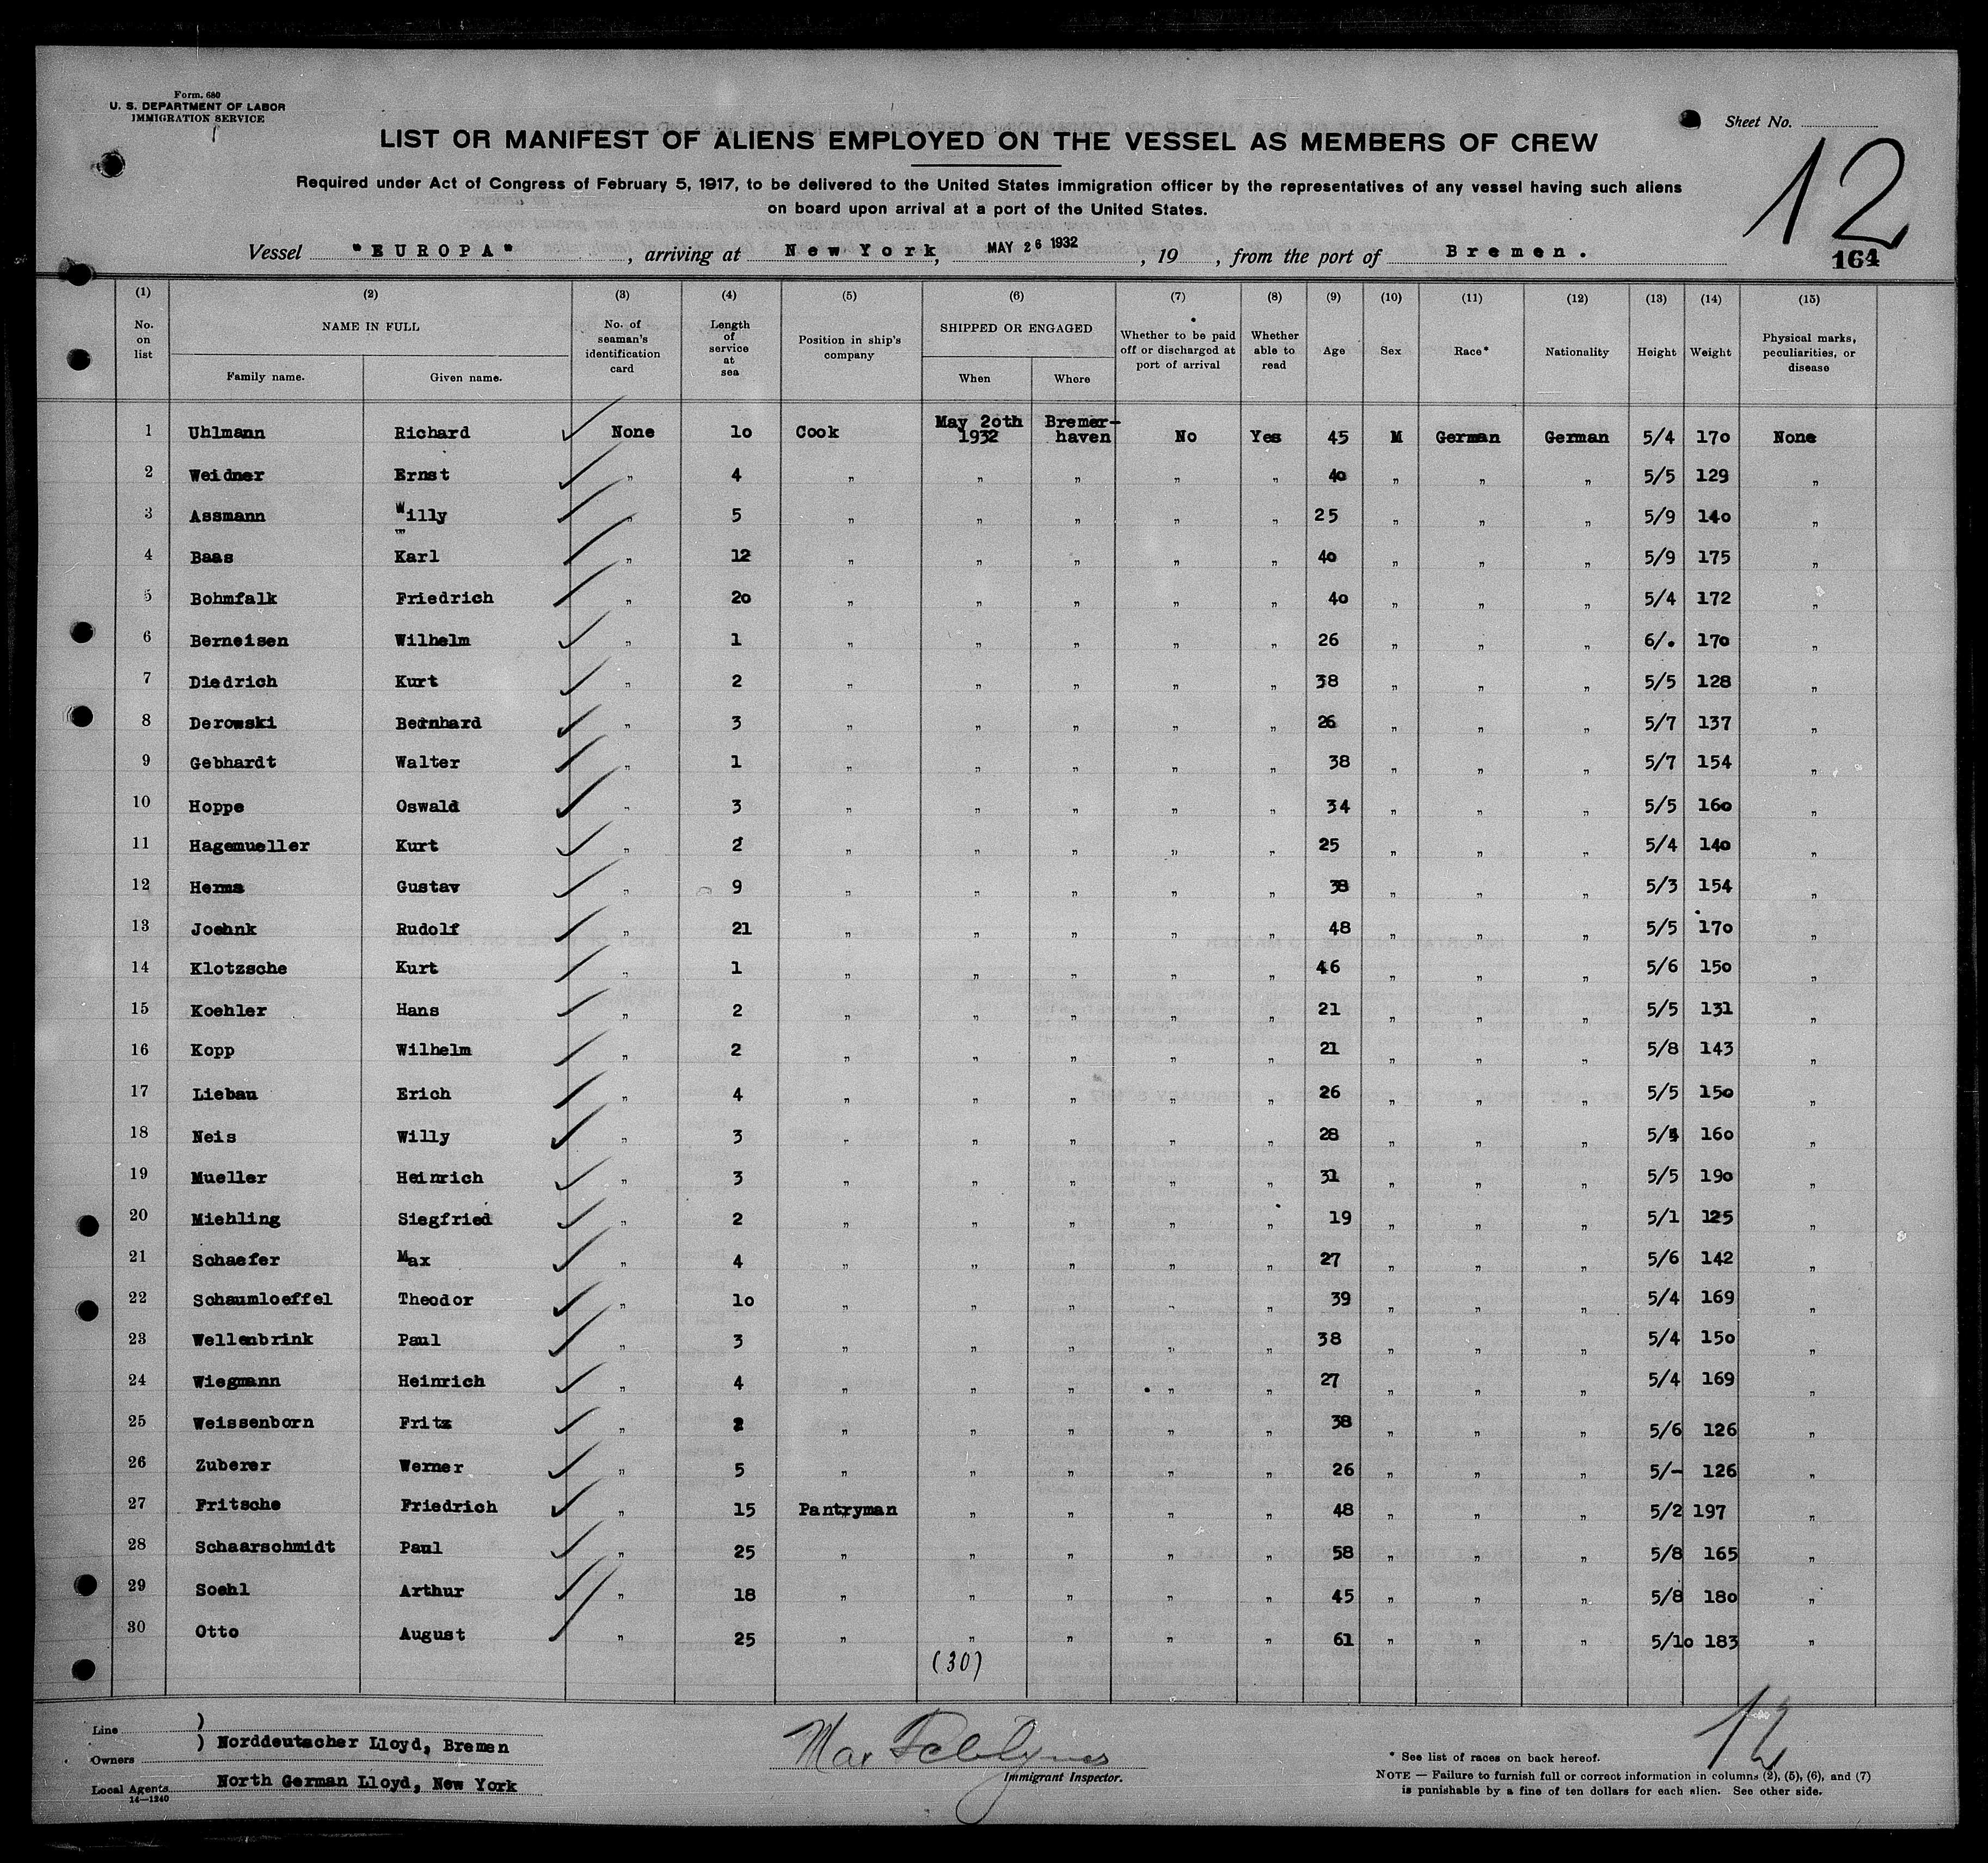 Form. 680
U. S. DEPARTMENT OF LABOR
IMMIGRATION SERVICE
Sheet No.
12
LIST OR MANIFEST OF ALIENS EMPLOYED ON THE VESSEL AS MEMBERS OF CREW
Required under Act of Congress of February 5, 1917, to be delivered to the United States immigration officer by the representatives of any vessel having such aliens
on board upon arrival at a port of the United States.
Vessel "EUROPA", arriving at New York, MAY 26 1932, 19 , from the port of Bremen.
164
(1) (2) (3) (4) (5) (6) (7) (8) (9) (10) (11) (12) (13) (14) (15)
No. on list NAME IN FULL Family name. Given name. No. of seaman's identification card Length of service at sea Position in ship's company SHIPPED OR ENGAGED When Where Whether to be paid off or discharged at port of arrival Whether able to read Age Sex Race* Nationality Height Weight Physical marks, peculiarities, or disease
1 Uhlmann Richard None 10 Cook May 20th 1932 Bremer-haven No Yes 45 M German German 5/4 170 None
2 Weidner Ernst " 4 " " " " " 40 " " " 5/5 129 "
3 Assmann Willy " 5 " " " " " 25 " " " 5/9 140 "
4 Baas Karl " 12 " " " " " 40 " " " 5/9 175 "
5 Bohmfalk Friedrich " 20 " " " " " 40 " " " 5/4 172 "
6 Berneisen Wilhelm " 1 " " " " " 26 " " " 6/. 170 "
7 Diedrich Kurt " 2 " " " " " 38 " " " 5/5 128 "
8 Derowski Bernhard " 3 " " " " " 26 " " " 5/7 137 "
9 Gebhardt Walter " 1 " " " " " 38 " " " 5/7 154 "
10 Hoppe Oswald " 3 " " " " " 34 " " " 5/5 160 "
11 Hagemueller Kurt " 2 " " " " " 25 " " " 5/4 140 "
12 Herms Gustav " 9 " " " " " 38 " " " 5/3 154 "
13 Joehnk Rudolf " 21 " " " " " 48 " " " 5/5 170 "
14 Klotzsche Kurt " 1 " " " " " 46 " " " 5/6 150 "
15 Koehler Hans " 2 " " " " " 21 " " " 5/5 131 "
16 Kopp Wilhelm " 2 " " " " " 21 " " " 5/8 143 "
17 Liebau Erich " 4 " " " " " 26 " " " 5/5 150 "
18 Neis Willy " 3 " " " " " 28 " " " 5/4 160 "
19 Mueller Heinrich " 3 " " " " " 31 " " " 5/5 190 "
20 Miehling Siegfried " 2 " " " " " 19 " " " 5/1 125 "
21 Schaefer Max " 4 " " " " " 27 " " " 5/6 142 "
22 Schaumloeffel Theodor " 10 " " " " " 39 " " " 5/4 169 "
23 Wellenbrink Paul " 3 " " " " " 38 " " " 5/4 150 "
24 Wiegmann Heinrich " 4 " " " " " 27 " " " 5/4 169 "
25 Weissenborn Fritz " 2 " " " " " 38 " " " 5/6 126 "
26 Zuberer Werner " 5 " " " " " 26 " " " 5/- 126 "
27 Fritsche Friedrich " 15 Pantryman " " " " 48 " " " 5/2 197 "
28 Schaarschmidt Paul " 25 " " " " " 58 " " " 5/8 165 "
29 Soehl Arthur " 18 " " " " " 45 " " " 5/8 180 "
30 Otto August " 25 " " " " " 61 " " " 5/10 183 "
(30)
12
Line )
Owners ) Norddeutscher Lloyd, Bremen
Local Agents North German Lloyd, New York
14—1240
Max
Immigrant Inspector.
* See list of races on back hereof.
NOTE — Failure to furnish full or correct information in columns (2), (5), (6), and (7)
is punishable by a fine of ten dollars for each alien. See other side.